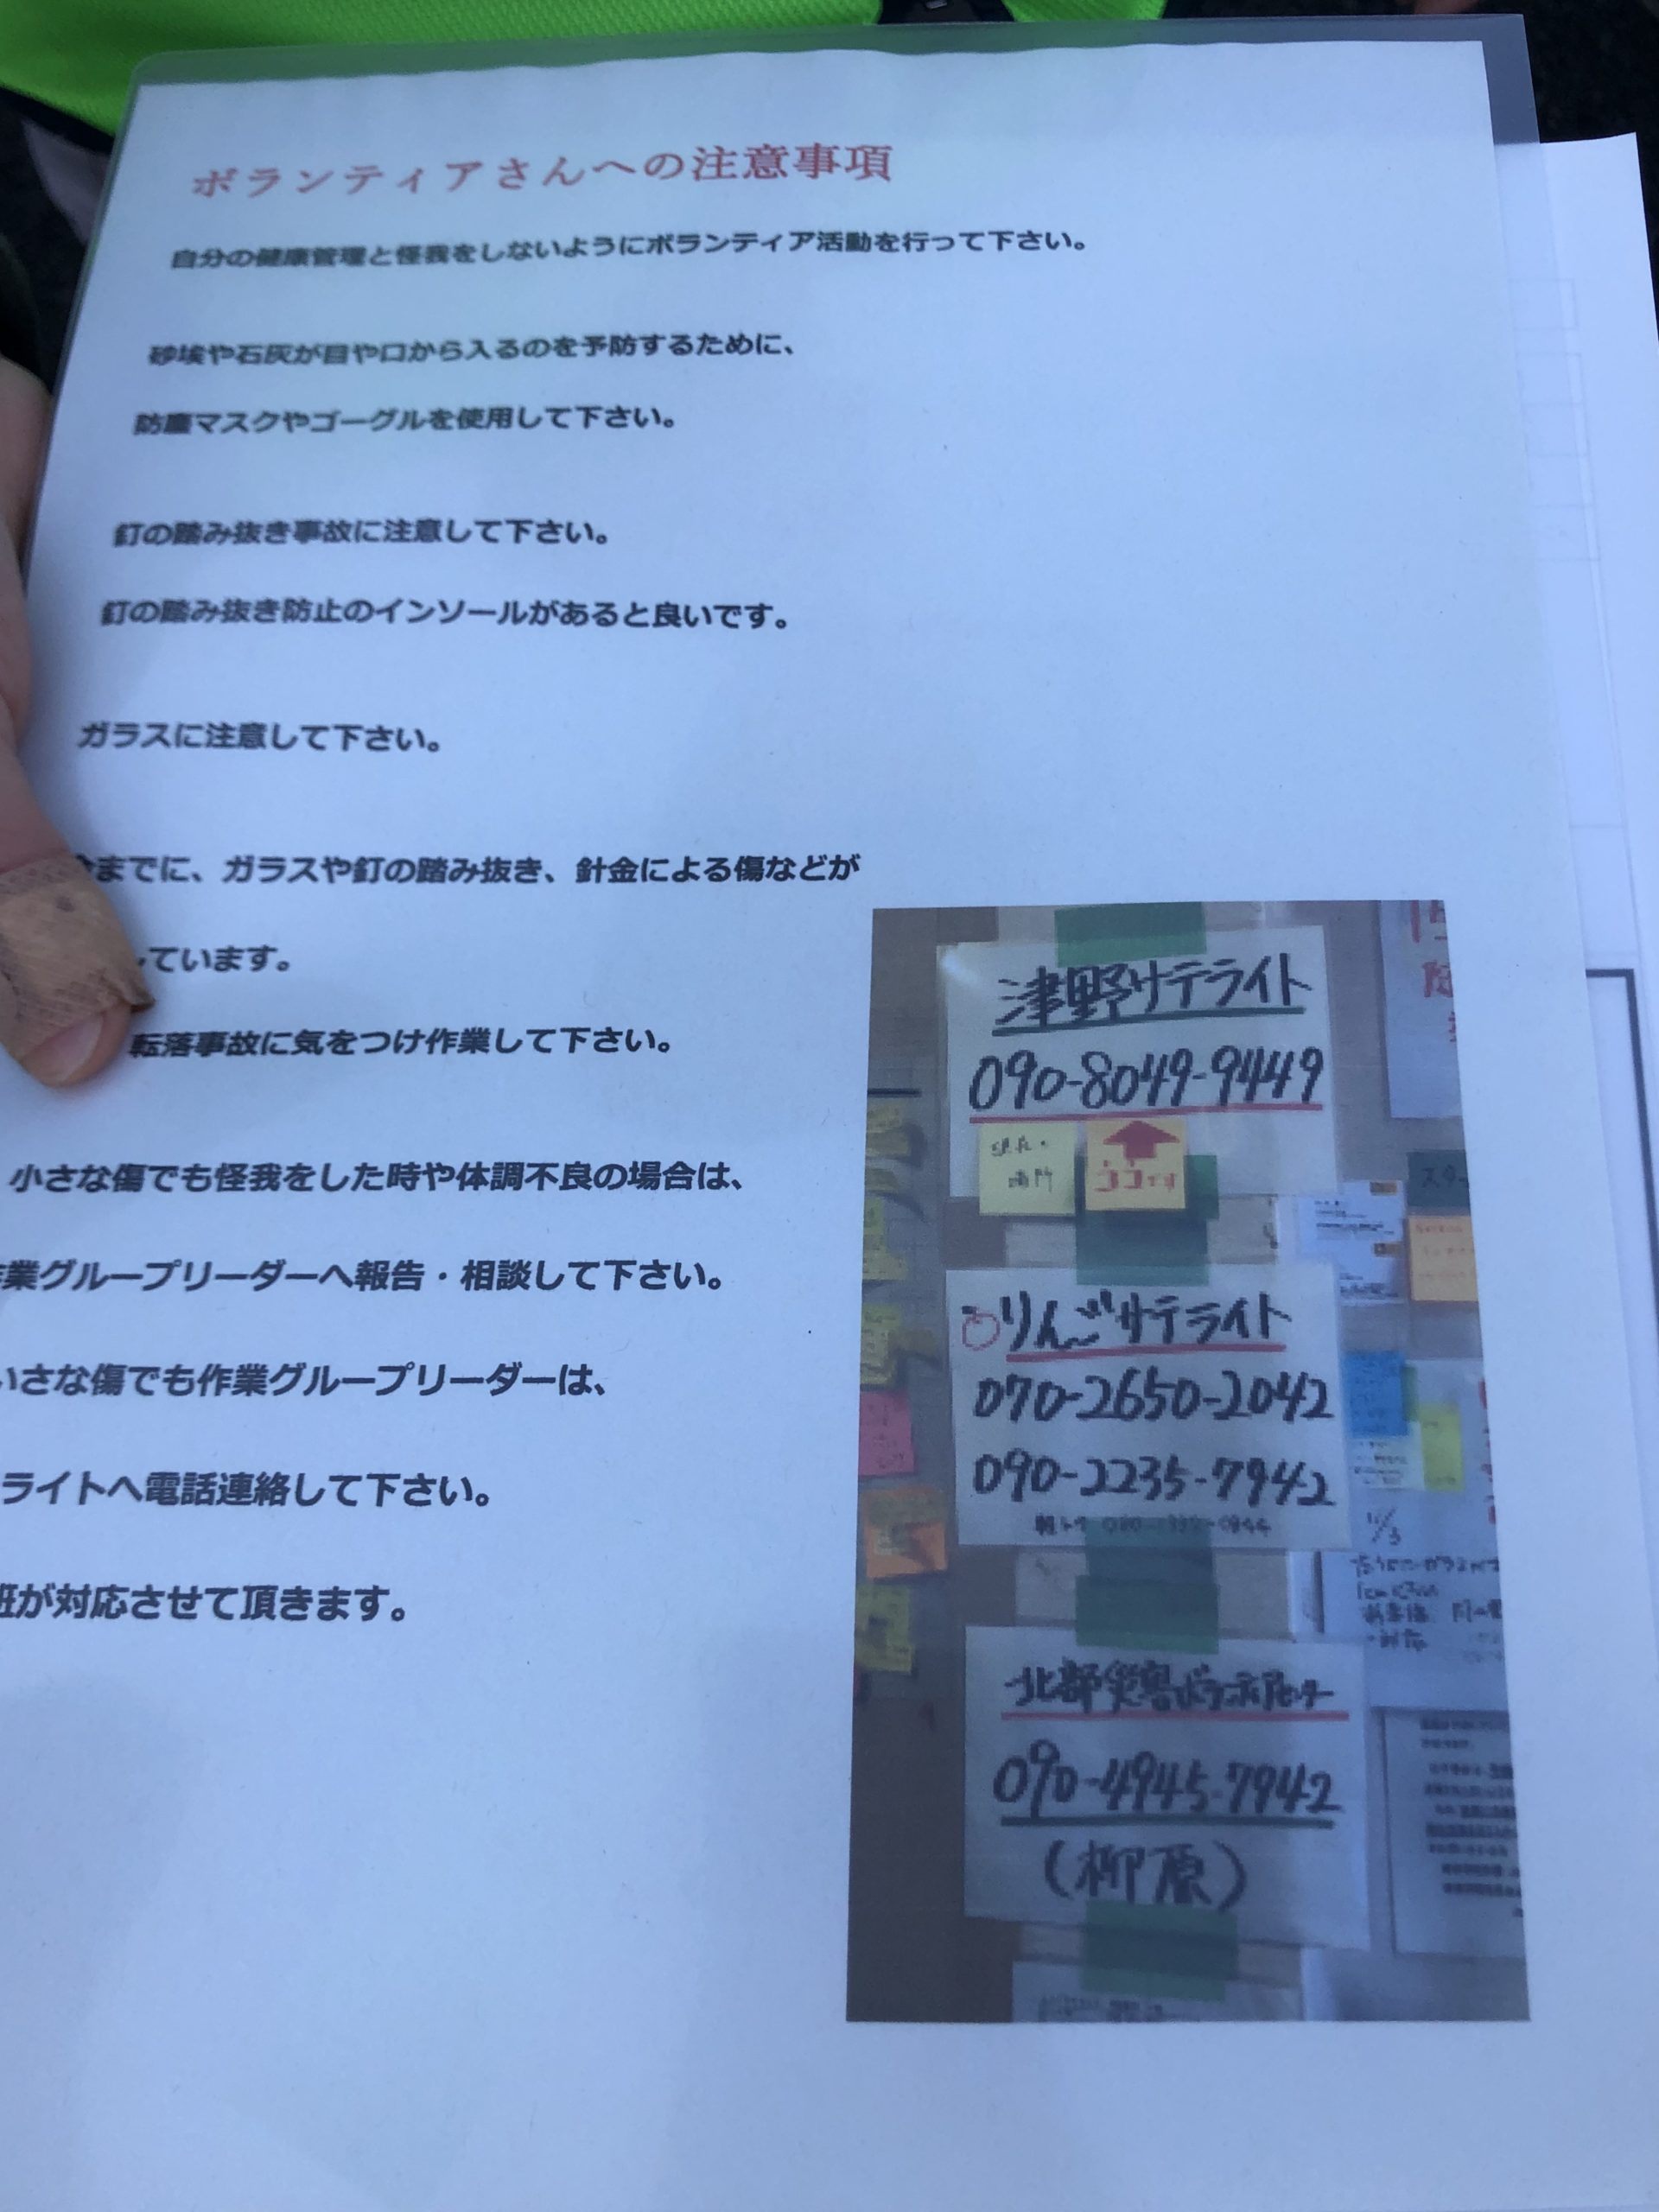 ボランティアさんへの注意事項
自分の健康管理と怪我をしないようにボランティア活動を行って下さい。
砂埃や石灰が目や口から入るのを予防するために、
防塵マスクやゴーグルを使用して下さい。
釘の踏み抜き事故に注意して下さい。
釘の踏み抜き防止のインソールがあると良いです。
ガラスに注意して下さい。
までに、ガラスや釘の踏み抜き、針金による傷などが
ています。
転落事故に気をつけ作業して下さい。
小さな傷でも怪我をした時や体調不良の場合は、
業グループリーダーへ報告・相談して下さい。
さな傷でも作業グループリーダーは、
ライトへ電話連絡して下さい。
班が対応させて頂きます。
津野サテライト
090-8049-9449
ココです
りんごサテライト
070-2650-2042
090-2235-7942
北部災害ボランティアセンター
090-4945-7942
(柳原)